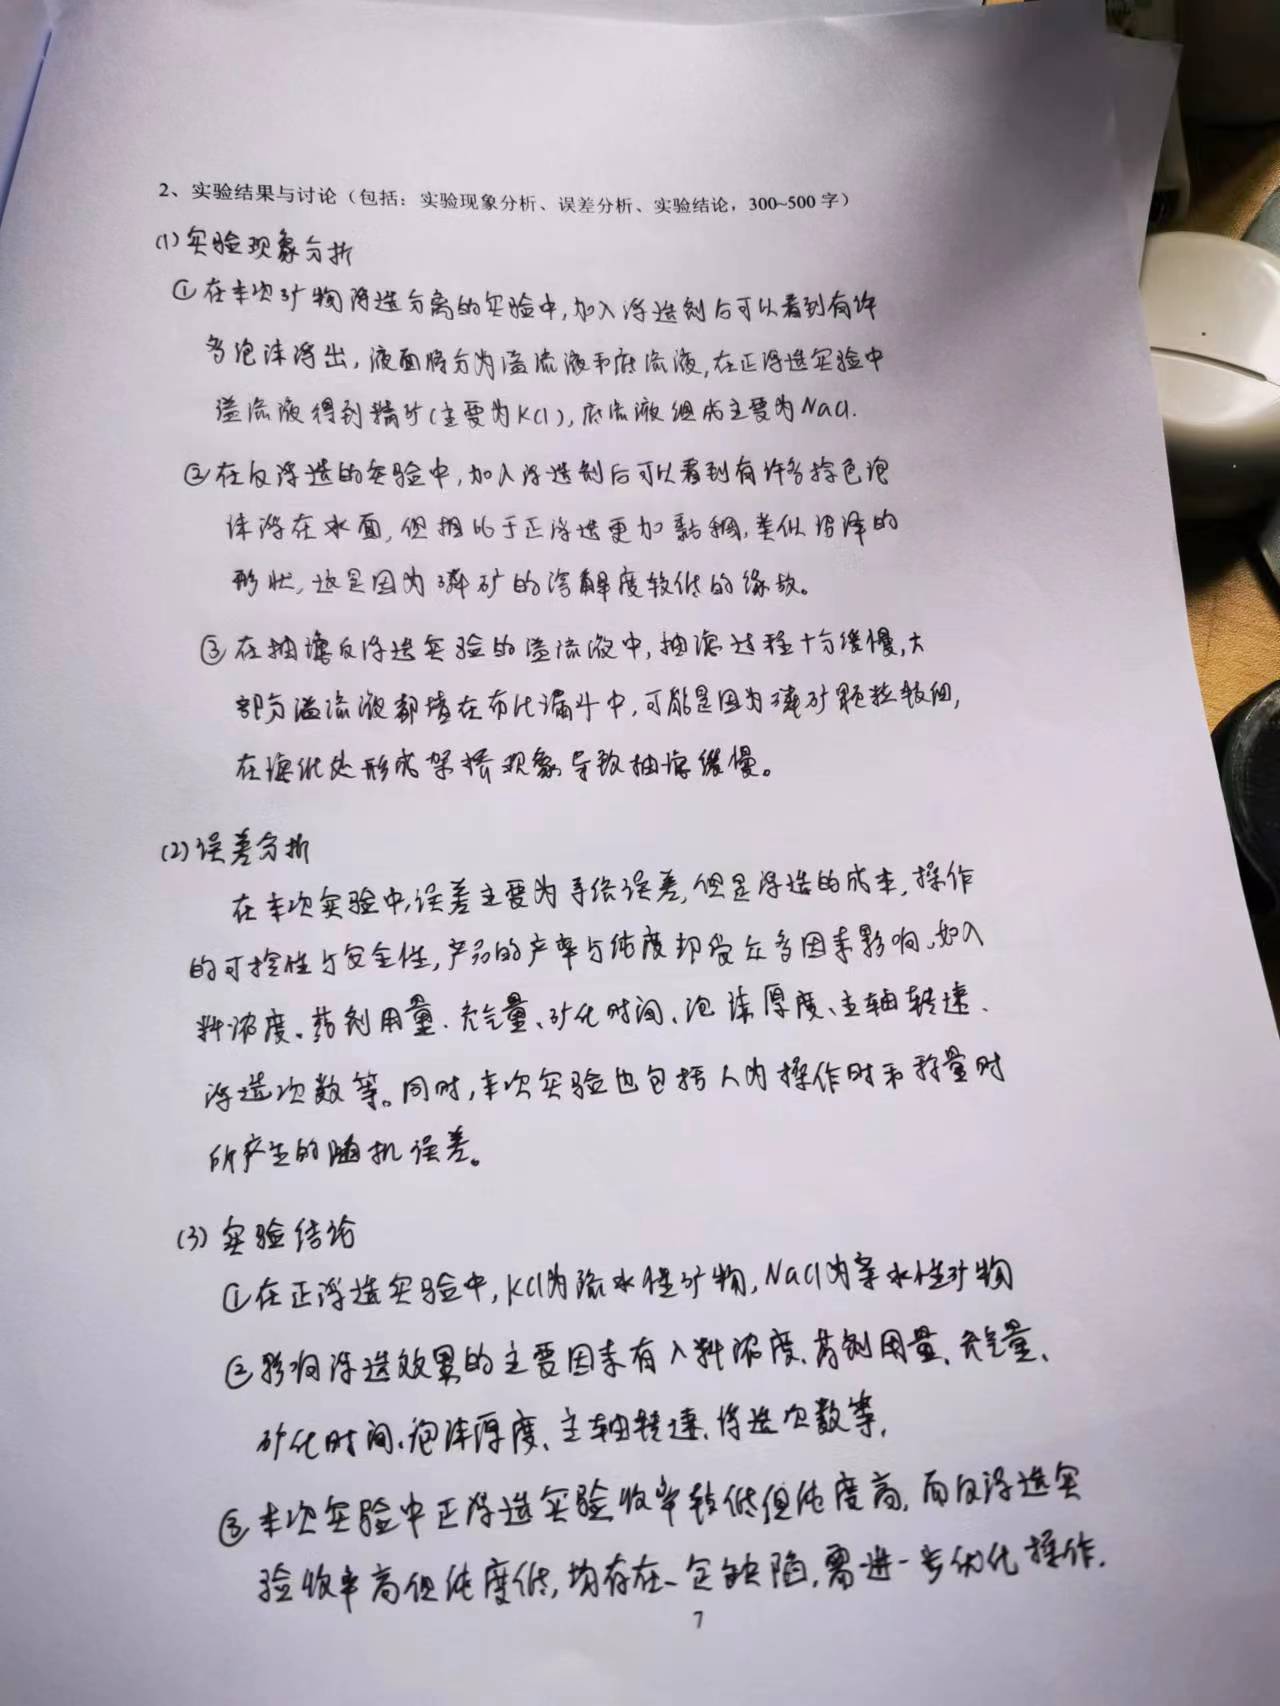 2、实验结果与讨论（包括：实验现象分析、误差分析、实验结论，300~500 字）
(1) 实验现象分析
①在本次矿物浮选分离的实验中,加入浮选剂后可以看到有许
多泡沫浮出，液面将分为溢流液和底流液,在正浮选实验中
溢流液得到精矿(主要为KCl),底流液组成主要为NaCl.
②在反浮选的实验中,加入浮选剂后可以看到有许多棕色泡
沫浮在水面,但相比于正浮选更加黏稠,类似沼泽的
形状,这是因为磷矿的溶解度较低的缘故。
③在抽滤反浮选实验的溢流液中,抽滤过程十分缓慢,大
部分溢流液都堵在布氏漏斗中,可能是因为磷矿颗粒较细,
在滤纸处形成架桥现象导致抽滤缓慢。
(2)误差分析
在本次实验中,误差主要为系统误差,但是浮选的成本,操作
的可控性与安全性,产品的产率与纯度却受众多因素影响,如入
料浓度、药剂用量、充气量、矿化时间、泡沫厚度、主轴转速、
浮选次数等。同时,本次实验也包括人为操作时和称量时
所产生的随机误差。
(3) 实验结论
①在正浮选实验中,KCl为疏水性矿物,NaCl为亲水性矿物
②影响浮选效果的主要因素有入料浓度、药剂用量、充气量、
矿化时间、泡沫厚度、主轴转速、浮选次数等,
③本次实验中正浮选实验收率较低但纯度高,而反浮选实
验收率高但纯度低,均存在一定缺陷,需进一步优化操作.
7